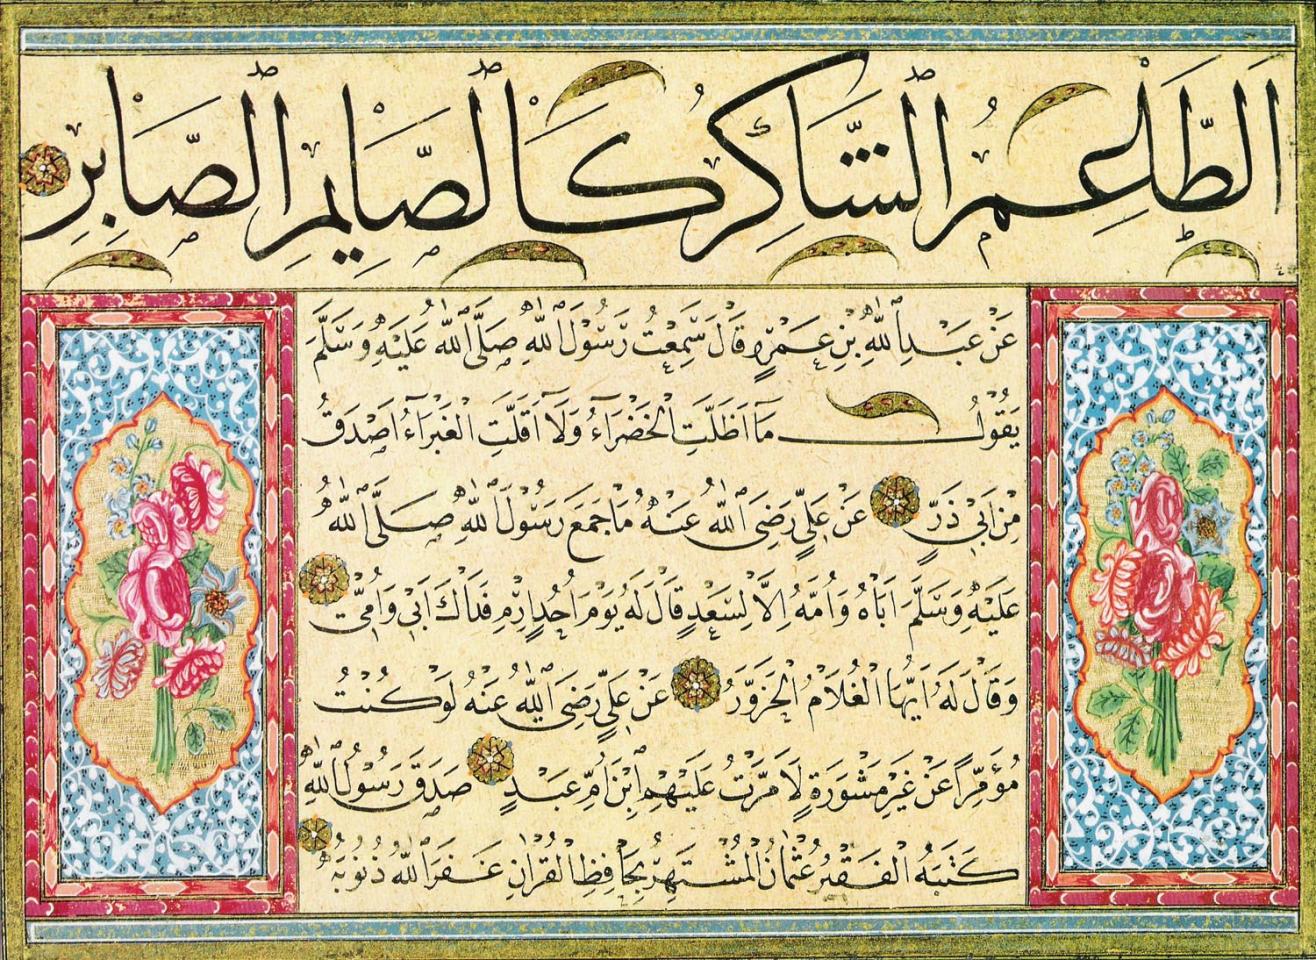 اَلطَّاعِمُ الشَّاكِرُ كَالصَّايِمِ الصَّابِرِ
عَنْ عَبْدِ اللّٰهِ بْنِ عَمْرٍو قَالَ سَمِعْتُ رَسُولَ اللّٰهِ صَلَّى اللّٰهُ عَلَيْهِ وَسَلَّمَ
يَقُولُ مَا اَظَلَّتِ الْخَضْرَاءُ وَلَا اَقَلَّتِ الْغَبْرَاءُ اَصْدَقُ
مِنْ اَبِي ذَرٍّ عَنْ عَلِيٍّ رَضِيَ اللّٰهُ عَنْهُ مَا جَمَعَ رَسُولُ اللّٰهِ صَلَّى اللّٰهُ
عَلَيْهِ وَسَلَّمَ اَبَاهُ وَاُمَّهُ اِلَّا لِسَعْدٍ قَالَ لَهُ يَوْمَ اُحُدٍ اِرْمِ فِدَاكَ اَبِي وَاُمِّي
وَقَالَ لَهُ اَيُّهَا الْغُلَامُ الْحَزَوَّرُ عَنْ عَلِيٍّ رَضِيَ اللّٰهُ عَنْهُ لَوْ كُنْتُ
مُؤَمِّرًا عَنْ غَيْرِ مَشْوَرَةٍ لَاَمَّرْتُ عَلَيْهِمْ ابْنَ اُمِّ عَبْدٍ صَدَقَ رَسُولُ اللّٰهِ
كَتَبَهُ الْفَقِيرُ عُثْمَانُ الْمُشْتَهِرُ بِحَافِظِ الْقُرْاٰنِ غَفَرَ اللّٰهُ ذُنُوبَهُ